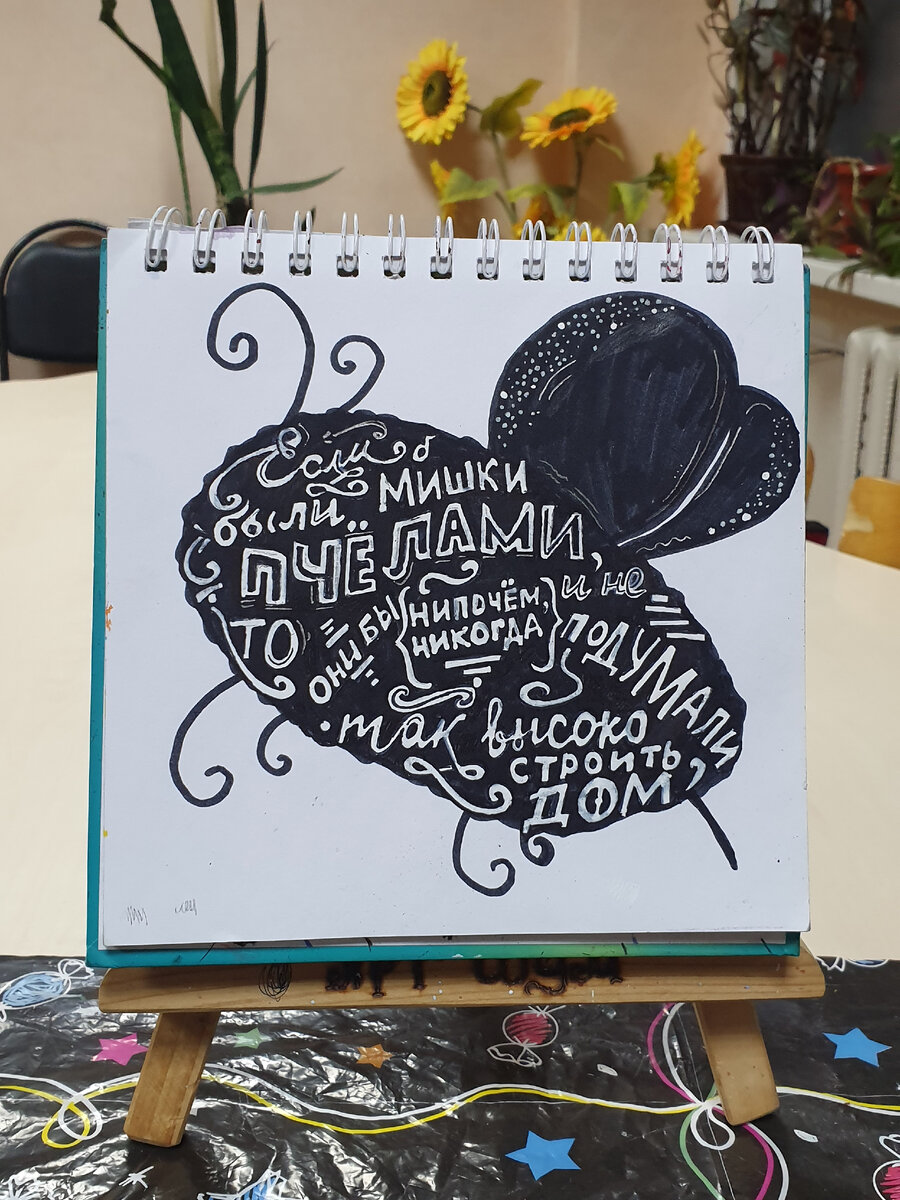 Если б
были мишки
пчёлами,
то они бы нипочём,
никогда
и не
подумали
так высоко
строить
дом,